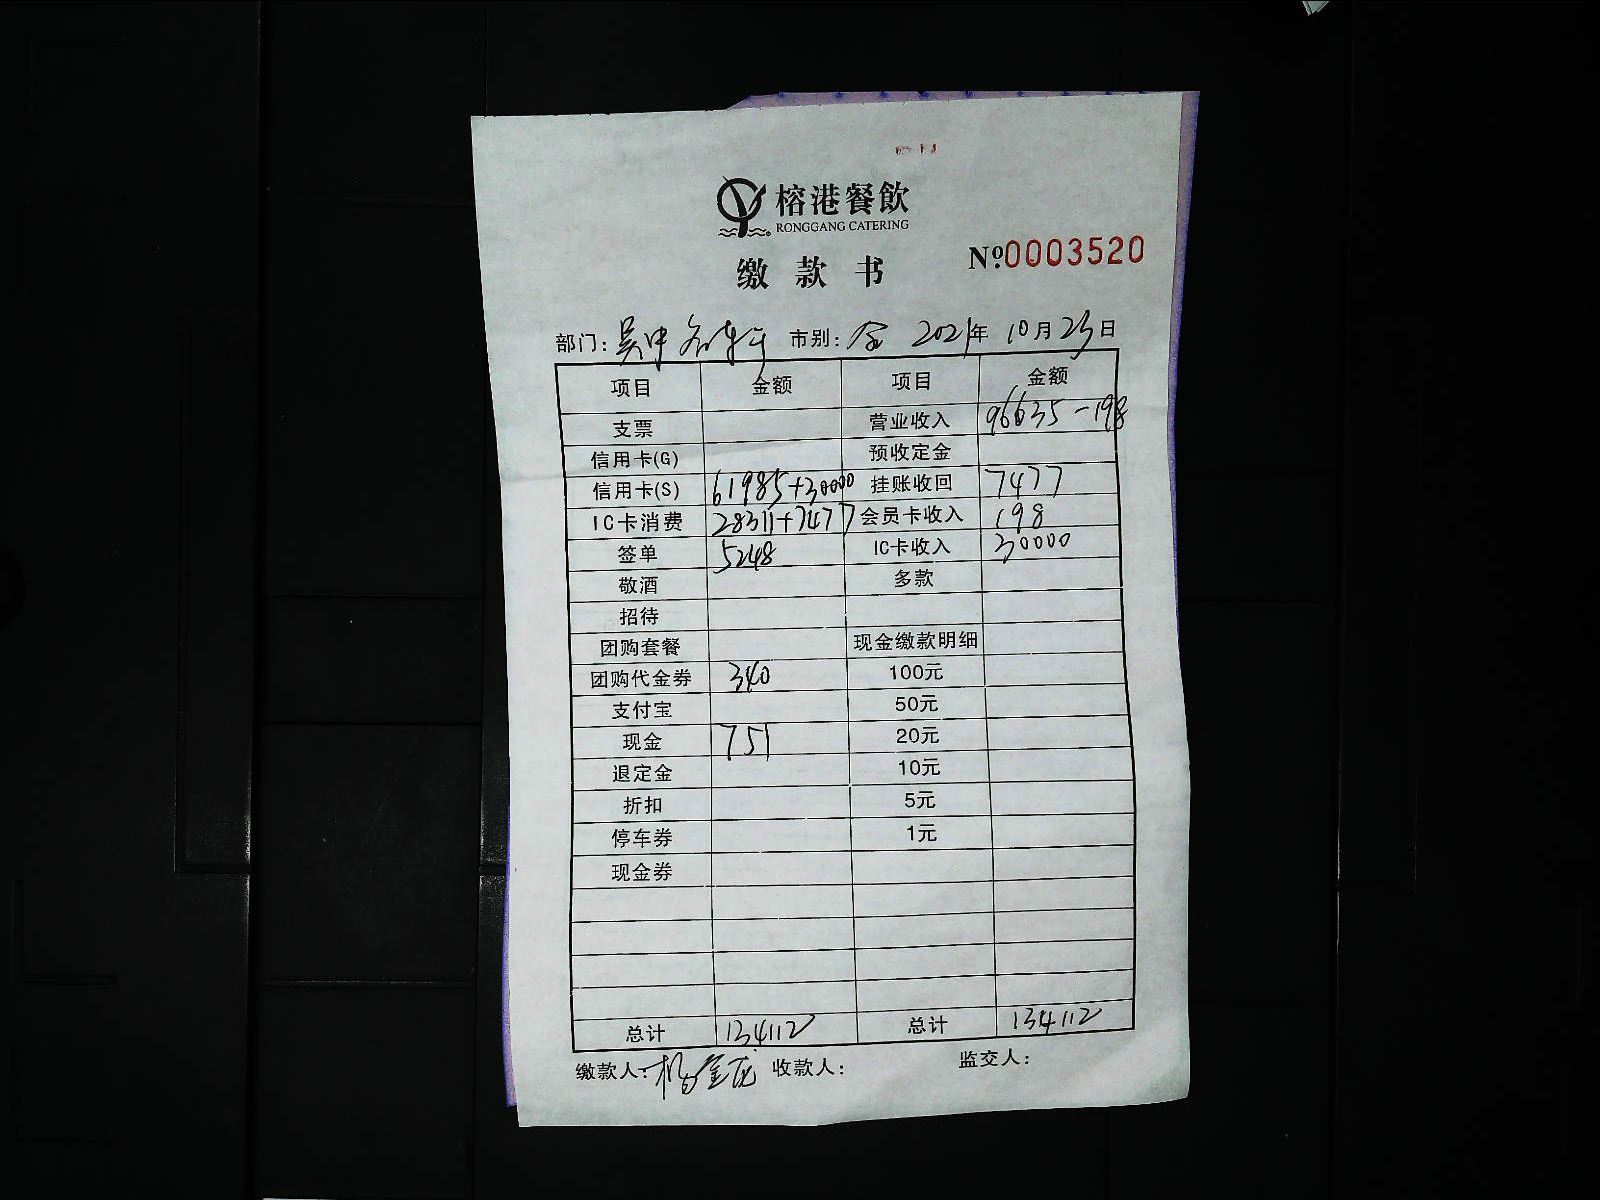 榕港餐飲
RONGGANG CATERING
缴款书
№0003520
部门: 吴中 市别: 全 2021年 10月23日
项目 金额 项目 金额
支票 营业收入 96635-198
信用卡(G) 预收定金
信用卡(S) 61985+30000 挂账收回 7477
IC卡消费 28311+7477 会员卡收入 198
签单 5248 IC卡收入 30000
敬酒 多款
招待
团购套餐 现金缴款明细
团购代金券 340 100元
支付宝 50元
现金 751 20元
退定金 10元
折扣 5元
停车券 1元
现金券
总计 134112 总计 134112
缴款人: 收款人: 监交人: